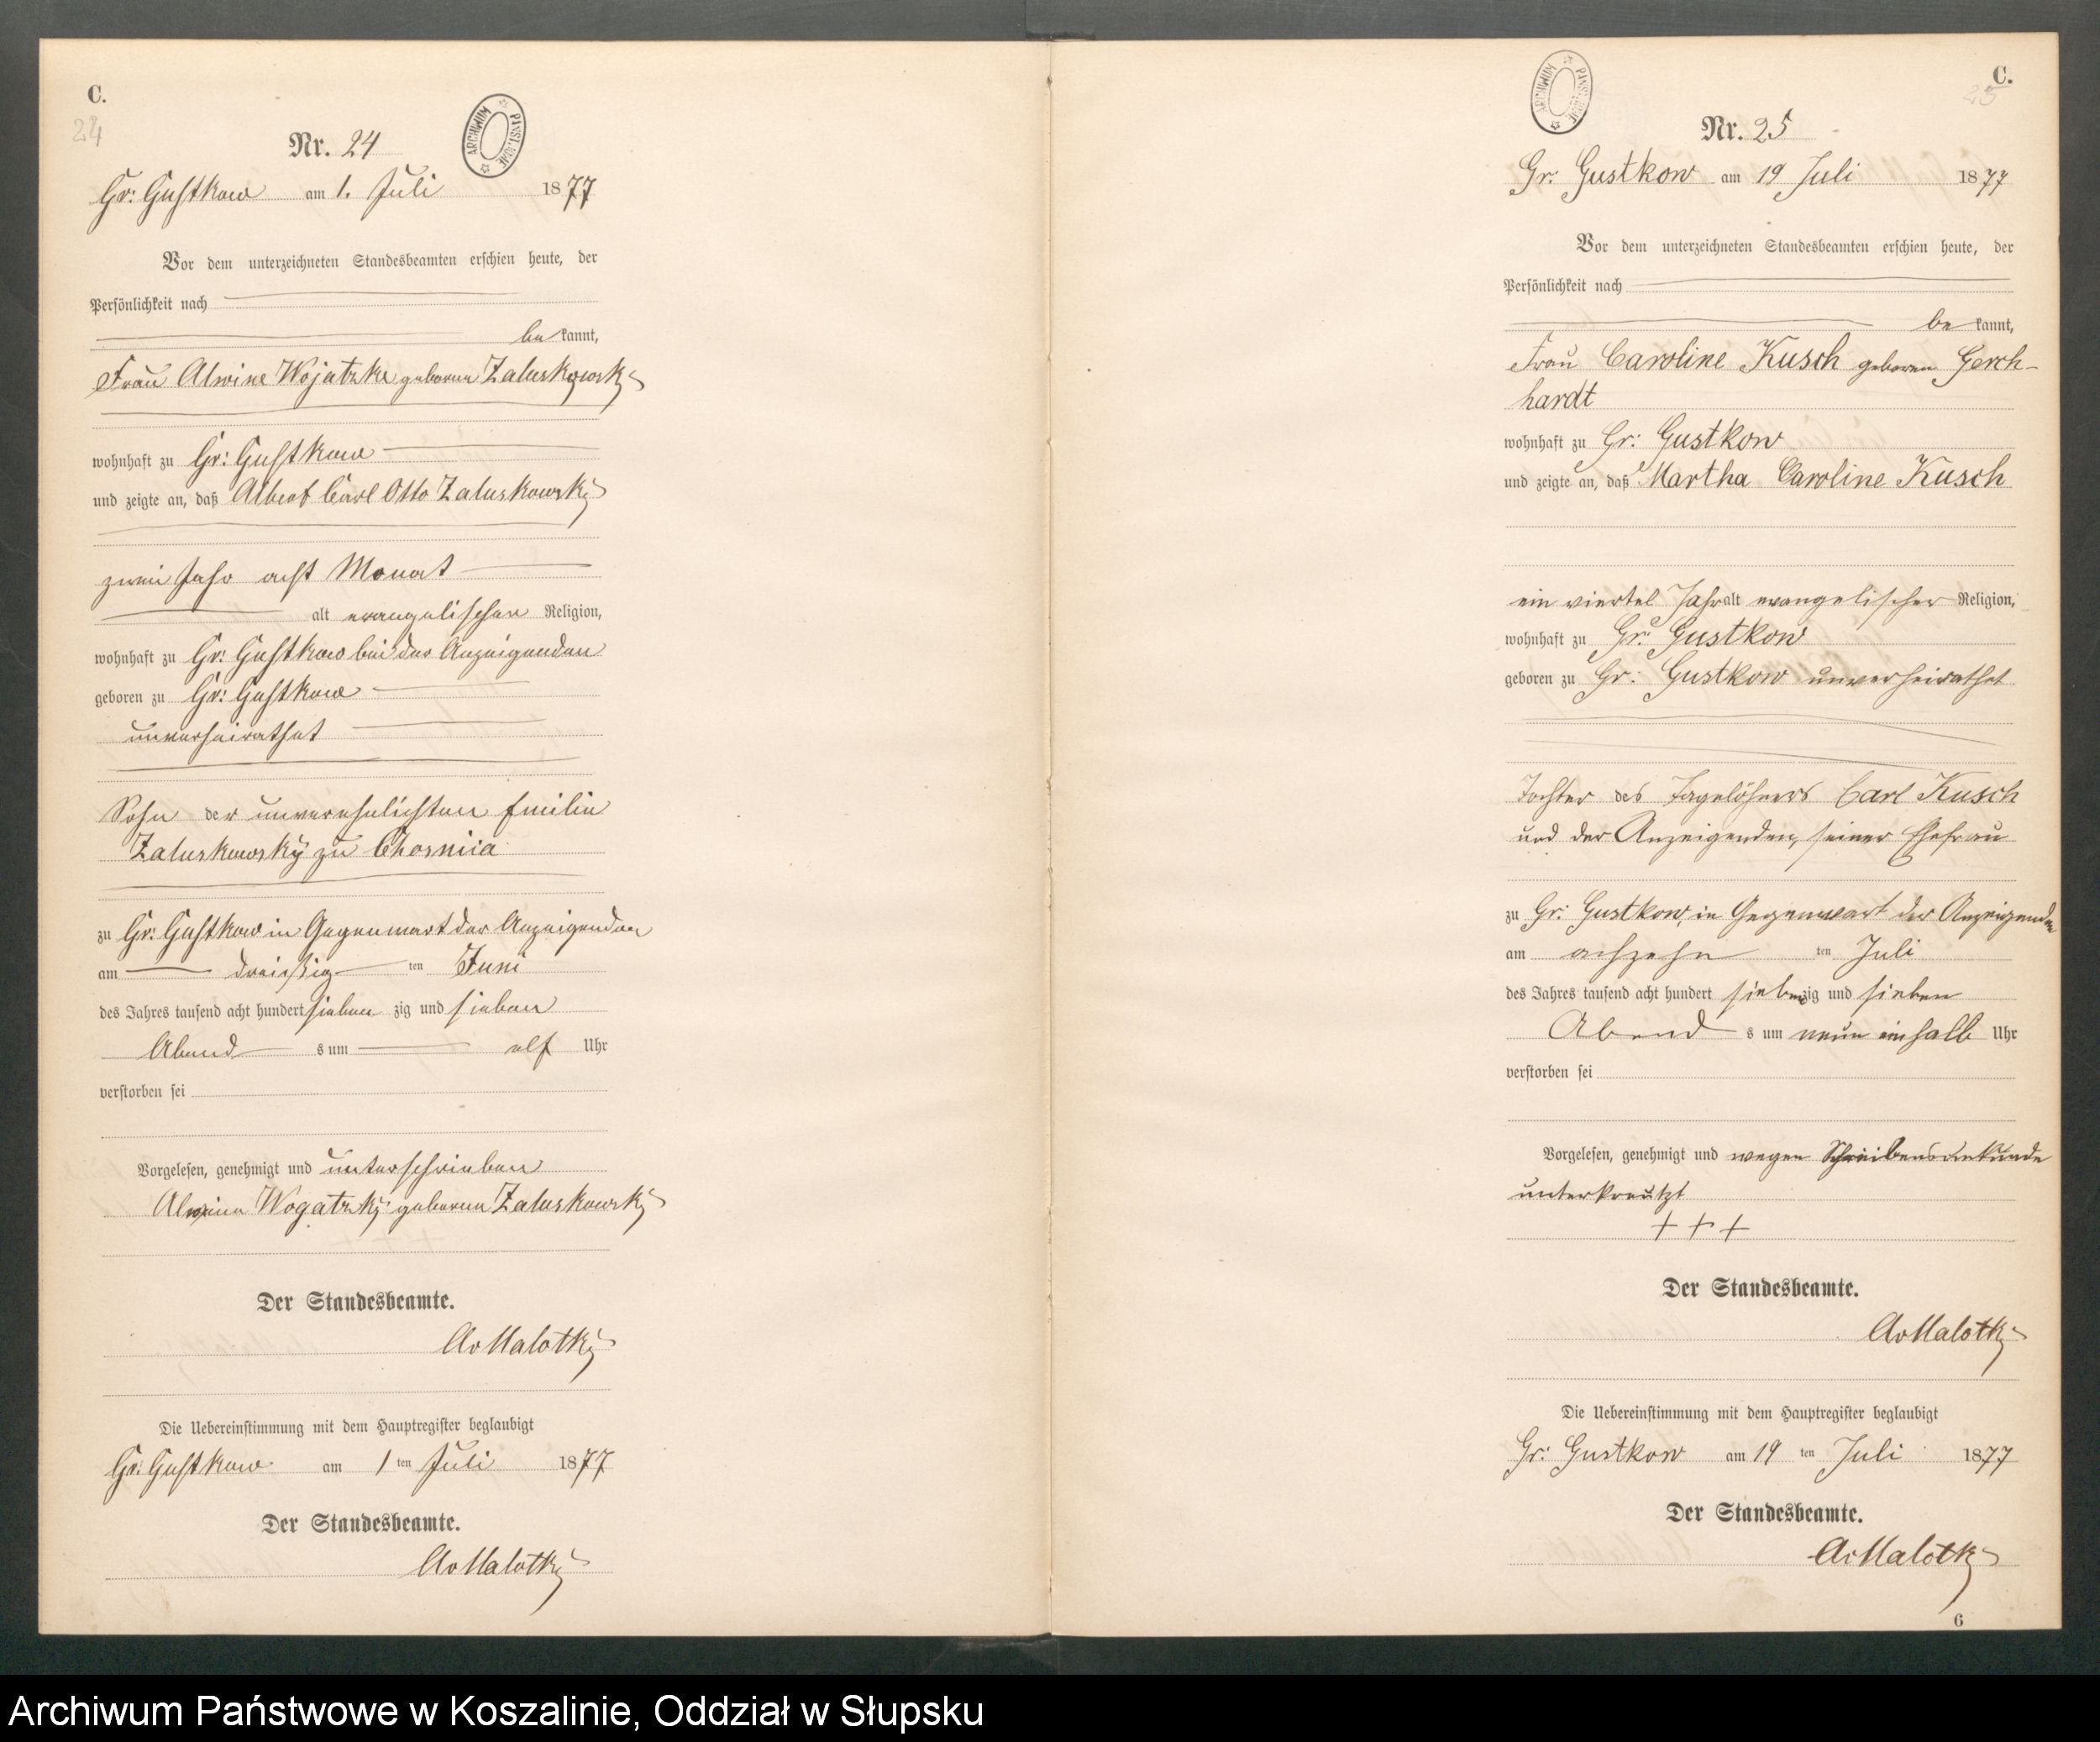 C.
24
Nr. 24
ARCHIWUM PAŃSTWOWE
Gr: Gustkow am 1. Juli 1877
Vor dem unterzeichneten Standesbeamten erschien heute, der
Persönlichkeit nach
be kannt,
Frau Alwine Wojatzke geborene Zaluskowsky
wohnhaft zu Gr: Gustkow
und zeigte an, daß Albert Carl Otto Zaluskowsky
zwei Jahr acht Monat
alt evangelischer Religion,
wohnhaft zu Gr: Gustkow bei der Anzeigenden
geboren zu Gr: Gustkow
unverheirathet
Sohn der unverehelichten Emilie
Zaluskowsky zu
zu Gr: Gustkow in Gegenwart der Anzeigenden
am dreißig ten Juni
des Jahres tausend acht hundert sieben zig und sieben
Abend s um elf Uhr
verstorben sei
Vorgelesen, genehmigt und unterschrieben
Alwine Wogatzky geborene Zaluskowsky
Der Standesbeamte.
AvMalotky
Die Uebereinstimmung mit dem Hauptregister beglaubigt
Gr: Gustkow am 1 ten Juli 1877
Der Standesbeamte.
AvMalotky
C.
25
Nr. 25
ARCHIWUM PAŃSTWOWE
Gr: Gustkow am 19 Juli 1877
Vor dem unterzeichneten Standesbeamten erschien heute, der
Persönlichkeit nach
be kannt,
Frau Caroline Kusch geborene Gerch-
hardt
wohnhaft zu Gr: Gustkow
und zeigte an, daß Martha Caroline Kusch
ein viertel Jahr alt evangelischer Religion,
wohnhaft zu Gr: Gustkow
geboren zu Gr: Gustkow unverheirathet
Tochter des Tagelöhners Carl Kusch
und der Anzeigenden, seiner Ehefrau
zu Gr: Gustkow, in Gegenwart der Anzeigenden
am achzehn ten Juli
des Jahres tausend acht hundert siebenzig und sieben
Abend s um neun ein halb Uhr
verstorben sei
Vorgelesen, genehmigt und wegen Schreibensunkunde
unterkreutzt
+ + +
Der Standesbeamte.
AvMalotky
Die Uebereinstimmung mit dem Hauptregister beglaubigt
Gr: Gustkow am 19 ten Juli 1877
Der Standesbeamte.
AvMalotky
6
Archiwum Państwowe w Koszalinie, Oddział w Słupsku